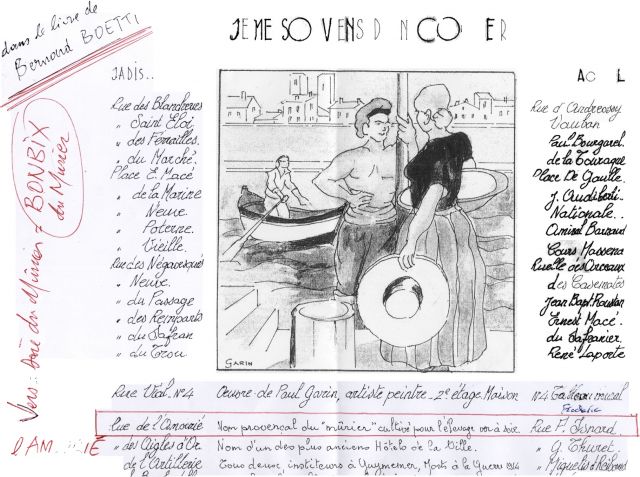 dans le livre de
Bernard BOETTI
JE ME SO VENS D N CO ER
JADIS..
Rue des Blanchéries
" Saint Eloi
" des Ferrailles.
" du Marché.
Place E. Macé
" de la Marine
" Neuve
" Poterne.
" Vieille.
Rue des Négadesques
" Neuve.
" du Passage
" des Remparts
" du Safran
" du Trou
AC L
Rue d'Andreossy
Vauban
Paul Bourgarel
de la Tourraque
Place De Gaulle.
J. Audiberti.
Nationale..
Amiral Barraud
Cours Massena
Ruelle des Arceaux
des Casemates
Jean Bapt. Roustan
Ernest Macé.
du Safranier
René Laporte
BONBIX
du Mûrier
Vers: Soie du Mûrier =
GARIN
Rue Vial. N°4 Oeuvre de Paul Garin, artiste peintre _ 2e étage Maison N°4 mural
Rue de l'Amourié Nom provençal du "mûrier" cultivé pour l'élevage ver à soie. Rue F. Isnard
" des Aigles d'Or Nom d'un des plus anciens Hôtels de la Ville. " G. Thuret.
" de l'Artillerie Tous deux, instituteurs à Guynemer, Morts à la Guerre 1914